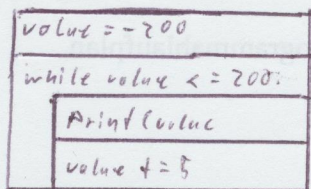 value = -200
while value <= 200:
print(value
value += 5